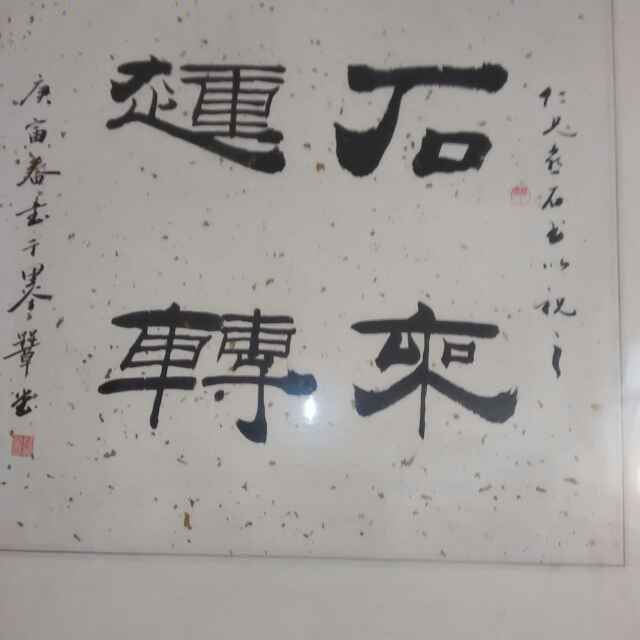 仁兄喜石书以祝之
石來
運轉
庚寅春书于堂